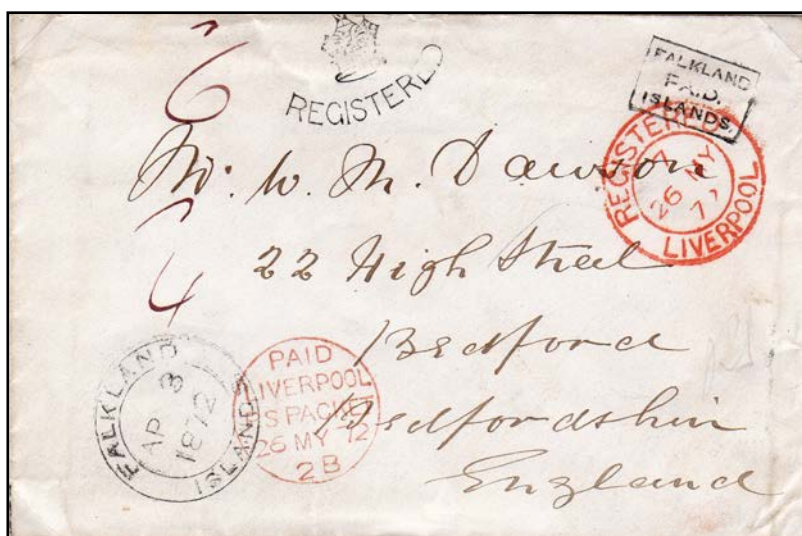 6
REGISTERED
FALKLAND
PAID.
ISLANDS.
REGISTERED
26 MY
7
LIVERPOOL
W. M. Dawson
22 High Street
Bedford
Bedfordshire
England
4
FALKLAND
AP 3
1872
ISLANDS
PAID
LIVERPOOL
US PACKET
26 MY 72
2B